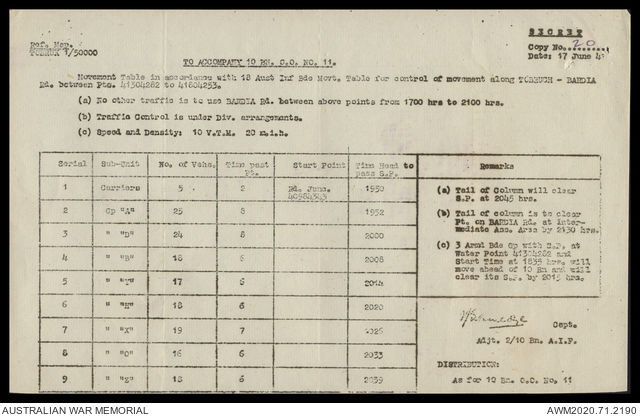 SECRET
Ref. Map.
TOBRUK 1/50000
Copy No. 20
Date: 17 June 41
TO ACCOMPANY 10 BN. O.O. NO. 11.
Movement Table in accordance with 18 Aust Inf Bde Movt. Table for control of movement along TOBRUCH - BARDIA
Rd. between Pts. 41304282 to 41804253.
(a) No other traffic is to use BARDIA Rd. between above points from 1700 hrs to 2100 hrs.
(b) Traffic Control is under Div. arrangements.
(c) Speed and Density: 10 V.T.M. 20 m.i.h.
Serial Sub-Unit No. of Vehs. Time past Pt. Start Point Time Head to pass S.P.
1 Carriers 5 2 Rd. Junc. 1950
2 Gp "A" 25 8 1952
3 " "D" 24 8 2000
4 " "B" 18 6 2008
5 " 17 6 2014
6 " 18 6 2020
7 " "X" 19 7 2026
8 " 16 6 2033
9 " 18 6 2039
Remarks
(a) Tail of Column will clear
S.P. at 2045 hrs.
(b) Tail of column is to clear
Pt. on BARDIA Rd. at Inter-
mediate Ass. Area by 2130 hrs.
(c) 3 Armd Bde Gp with S.P. at
Water Point 41304282 and
Start Time at 1835 hrs. will
move ahead of 10 Bn and will
clear its S.P. by 2015 hrs.
Capt.
Adjt. 2/10 Bn. A.I.F.
DISTRIBUTION:
As for 10 Bn. O.O. No. 11
AUSTRALIAN WAR MEMORIAL
AWM2020.71.2190